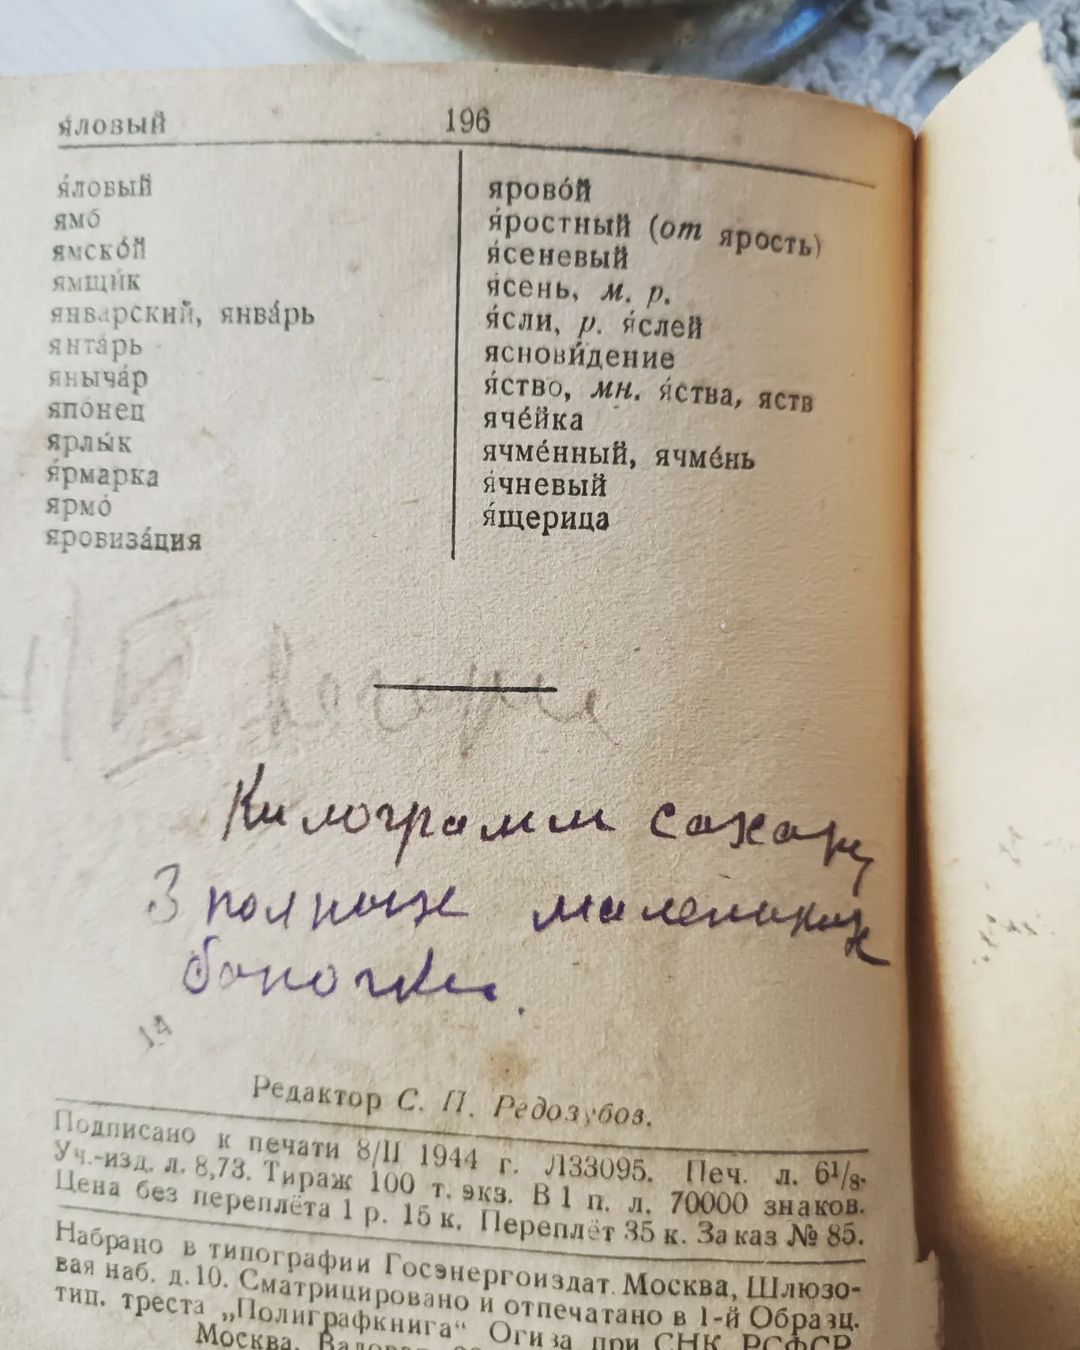 я́ловый 196
я́ловый
ямо́
ямско́й
ямщи́к
январский, янва́рь
янта́рь
яныча́р
япо́нец
ярлы́к
я́рмарка
ярмо́
яровиза́ция
ярово́й
я́ростный (от ярость)
я́сеневый
я́сень, м. р.
я́сли, р. я́слей
яснови́дение
я́ство, мн. я́ства, яств
яче́йка
ячме́нный, ячме́нь
я́чневый
я́щерица
Килограмм сахару
3 полных маленьких
баночки.
14
Редактор С. П. Редозубов.
Подписано к печати 8/II 1944 г. Л33095. Печ. л. 6¹/₈.
Уч.-изд. л. 8,73. Тираж 100 т. экз. В 1 п. л. 70000 знаков.
Цена без переплёта 1 р. 15 к. Переплёт 35 к. Заказ № 85.
Набрано в типографии Госэнергоиздат. Москва, Шлюзо-
вая наб. д. 10. Сматрицировано и отпечатано в 1-й Образц.
тип. треста „Полиграфкнига“ Огиза при СНК РСФСР
Москва,